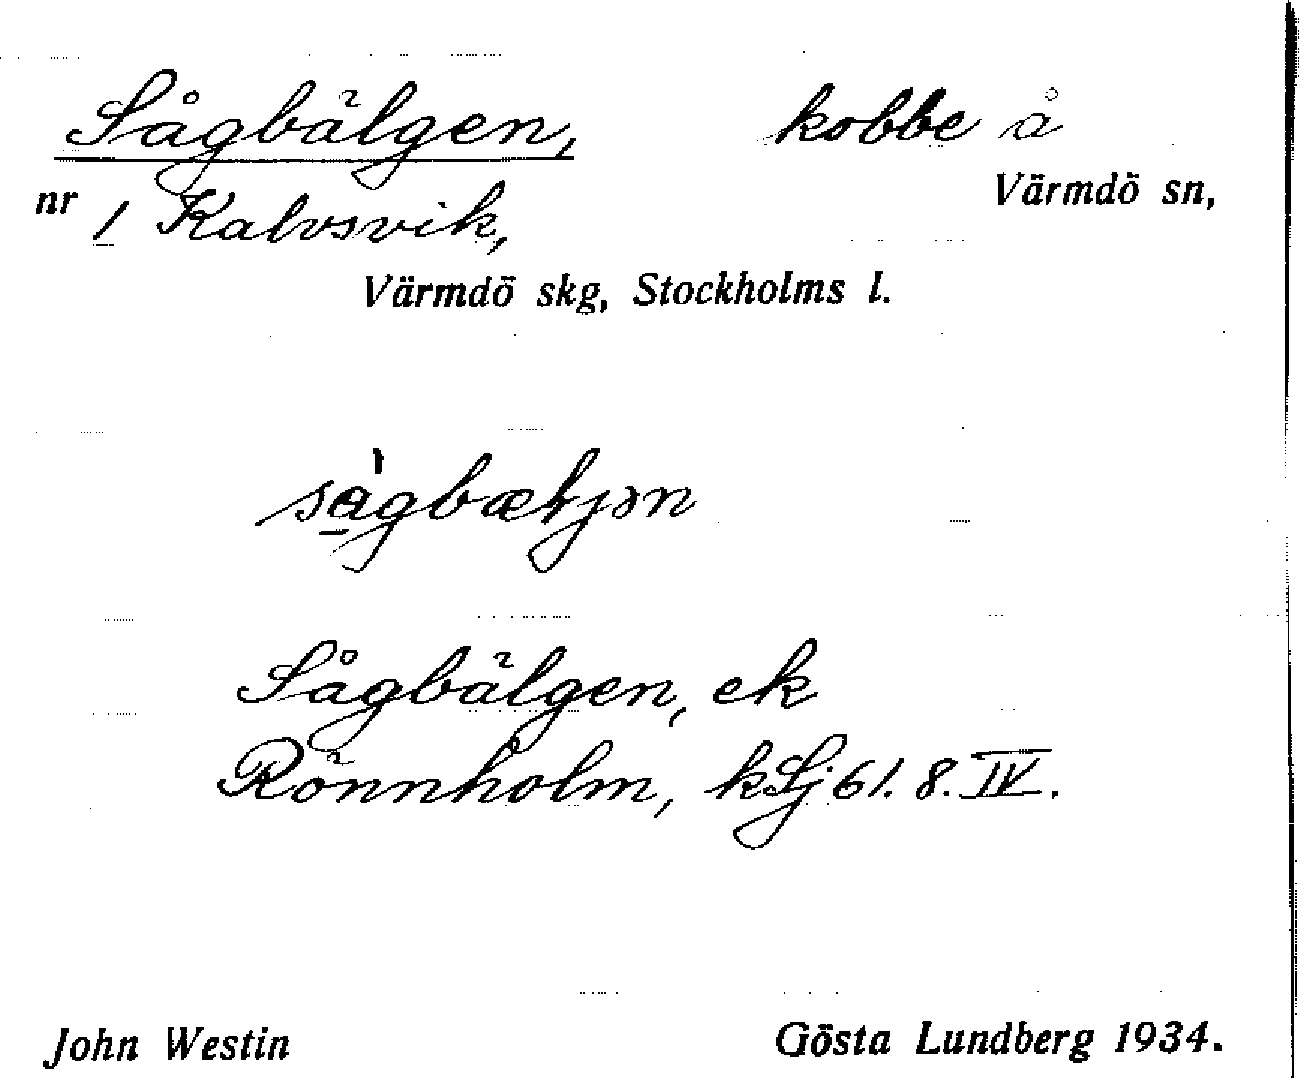 Sågbälgen, kobbe å
nr 1 Kalvsvik, Värmdö sn,
Värmdö skg, Stockholms l.
Sågbälgen, ek
Rönnholm, kSj 61. 8. IV.
John Westin Gösta Lundberg 1934.